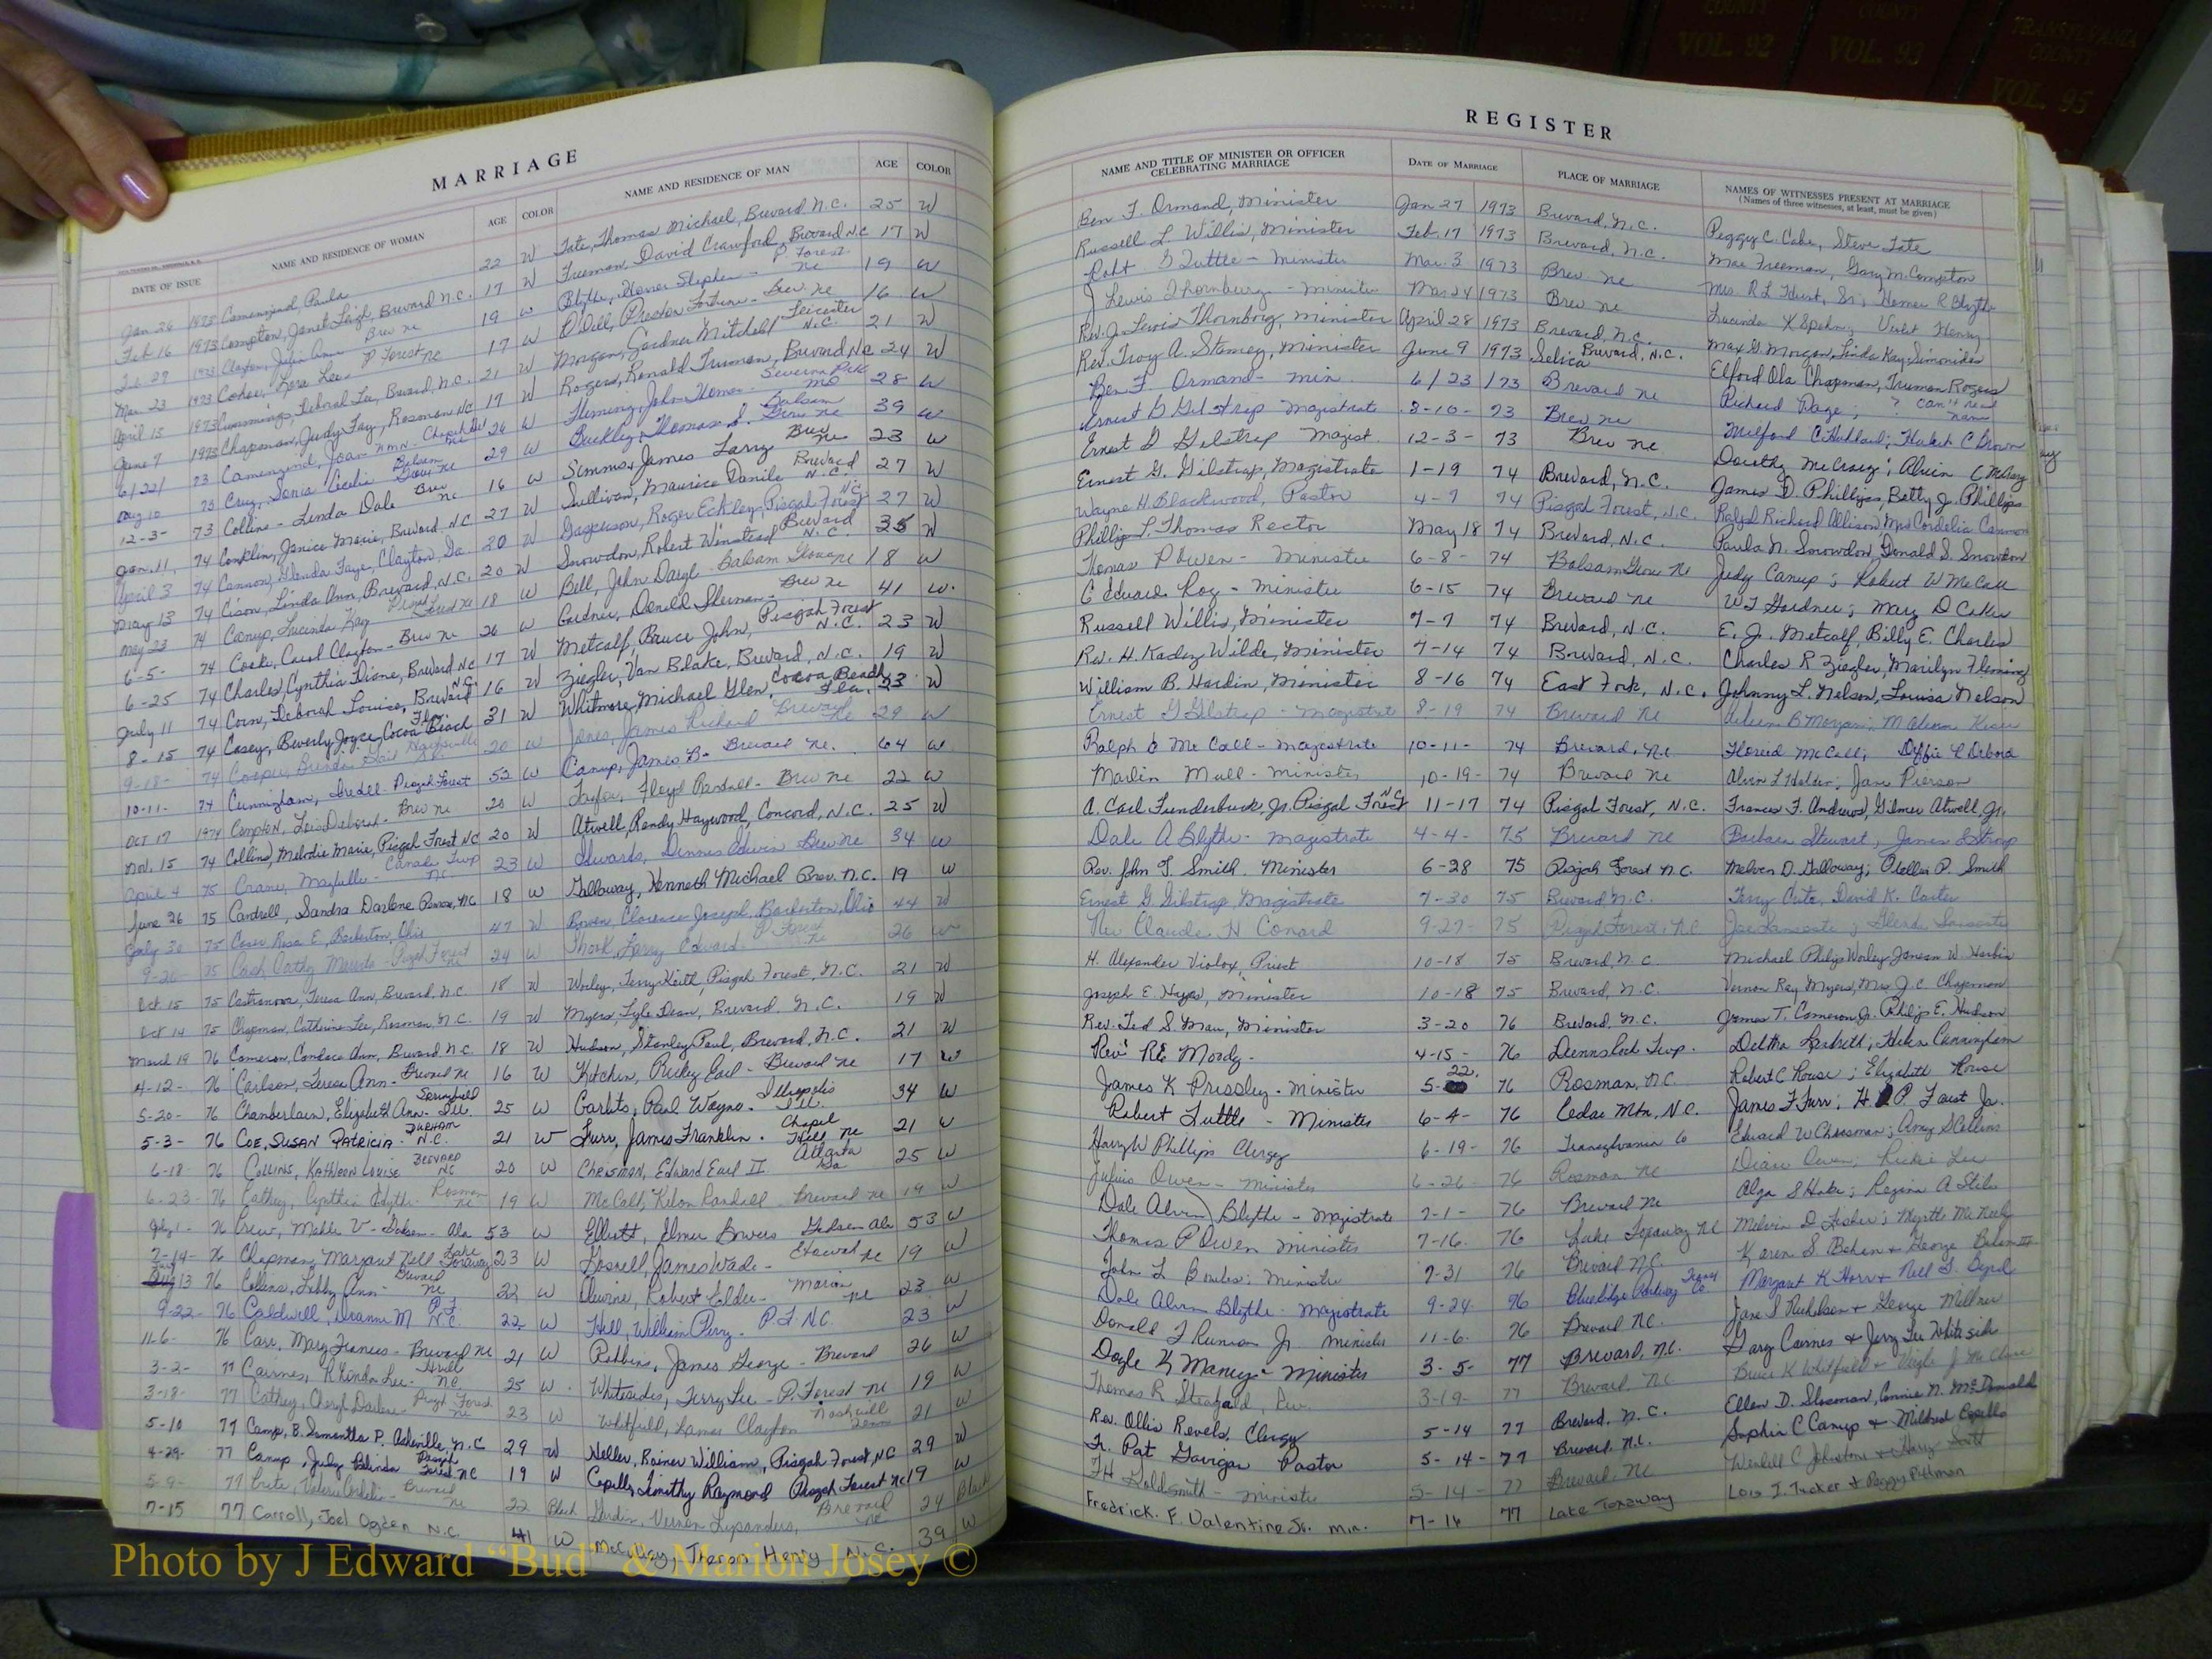 COUNTY
VOL. 92
COUNTY
VOL. 93
TRANSYLVANIA
COUNTY
VOL. 95
MARRIAGE
DATE OF ISSUE NAME AND RESIDENCE OF WOMAN AGE COLOR NAME AND RESIDENCE OF MAN AGE COLOR
Jan 26 1973 Camenzind, Paula 22 W Tate, Thomas Michael, Brevard, N.C. 25 W
Feb 16 1973 Compton, Janet Leigh, Brevard N.C. 17 W Freeman, David Crawford, Brevard N.C 17 W
1973 Clayton, Julia Ann Brev nc 19 W Blythe, Homer Stephen - P. Forest nc 19 W
Mar 23 1973 Lora Lee - P Forest nc 17 W O'Dell, Preston - Brev. nc 16 W
April 13 1973 Cummings, Deborah Lee, Brevard, N.C. 21 W Morgan, Gardner Mitchell Leicester N.C. 21 W
June 7 1973 Chapman, Judy Fay, Rosman NC 17 W Rogers, Ronald Truman, Brevard N.C 24 W
6/22/ 73 Camenzind, Joan - Chapel Hill nc 26 W Fleming, John Thomas - Severna Park Md 28 W
Aug 10 73 Cruz, Sonia Cecilia Balsam Grove nc 29 W Buckley, Thomas S. Balsam Grove nc 39 W
12-3- 73 Collins - Linda Dale Brev nc 16 W Simms, James Larry Brev nc 23 W
Jan. 11, 74 Conklin, Janice Marie, Brevard N.C 27 W Sullivan, Maurice Danile Brevard N.C. 27 W
April 3 74 Cannon, Glenda Faye, Clayton, Ga. 20 W Roger Eckley, Pisgah Forest N.C. 27 W
May 13 74 Cison, Linda Ann, Brevard, N.C. 20 W Snowdon, Robert Winstead Brevard N.C. 35 W
May 23 74 Canup, Lucinda Kay Pisgah Forest nc 18 W Bell, John Daryl - Balsam Grove nc 18 W
6-5- 74 Cooke, Carol Clayton - Brev nc 26 W Gardner, Donald Sherman - Brev nc 41 W.
6-25 74 Charles, Cynthia Diane, Brevard NC 17 W Metcalf, Bruce John, Pisgah Forest N.C. 23 W
July 11 74 Corn, Deborah Louise, Brevard N.C. 16 W Ziegler, Van Blake, Brevard, N.C. 19 W
8-15 74 Casey, Beverly Joyce, Cocoa Beach Fla. 31 W Whitmore, Michael Glen, Cocoa Beach Fla. 23 W
9-18- 74 Cooper, Brenda Gail 20 W Jones, James Richard Brevard nc 29 W
10-11- 74 Cunningham, Iredell - Pisgah Forest 52 W Canup, James B - Brevard nc. 64 W
Oct 17 1974 Compton, Lois Deborah - Brev nc 20 W Floyd Randall - Brev nc 22 W
Nov. 15 74 Collins, Melodie Marie, Pisgah Forest NC 20 W Atwell, Randy Haywood, Concord, N.C. 25 W
April 4 75 Crane, Maybelle - Canada Twp N.C. 23 W Edwards, Dennis Edwin Brev nc 34 W
June 26 75 Cantrell, Sandra Darlene, NC 18 W Galloway, Kenneth Michael Brev. N.C. 19 W
July 30 75 Rosa E, Barberton, Ohio 47 W Bowen, Clarence Joseph, Barberton, Ohio 44 W
9-26- 75 Cash Cathy - Pisgah Forest nc 24 W Larry Edward - P Forest nc 26 W
Oct. 15 75 Castranova, Teresa Ann, Brevard, N.C. 18 W Worley, Terry Keith, Pisgah Forest, N.C. 21 W
Oct 14 75 Chapman, Catherine Lee, Rosman, N.C. 19 W Myers, Lyle Dean, Brevard, N.C. 19 W
March 19 76 Cameron, Candace Ann, Brevard N.C. 18 W Hudson, Stanley Paul, Brevard, N.C. 21 W
4-12- 76 Carlson, Teresa Ann - Brevard nc 16 W Kitchen, Ricky Earl - Brevard nc 17 W
5-20- 76 Chamberlain, Elizabeth Ann - Springfield Ill. 25 W Garlits, Paul Wayne - Illiopolis Ill. 34 W
5-3- 76 COE, SUSAN PATRICIA - DURHAM N.C. 21 W Furr, James Franklin - Chapel Hill nc 21 W
6-18- 76 COLLINS, KATHLEEN LOUISE BREVARD NC 20 W CHEISMAN, EDWARD EARL II Atlanta Ga 25 W
6-23- 76 Cathey, Cynthia - Rosman nc 19 W McCall, Kelon Randall - Brevard nc 19 W
July 1- 76 Crew, Mable V - Gadsden - Ala 53 W Elliott, Elmer Bowers Gadsden Ala 53 W
7-14- 76 Chapman, Margaret Nell Lake Toxaway 23 W James Wade - Etowah nc 19 W
July 13 76 Collins, Libby Ann - Brevard nc 22 W Devine, Robert Elder - Marion nc 23 W
9-22- 76 Caldwell, Deanna M P.F. N.C. 22 W Hill, William Perry - P.F. N.C. 23 W
11-6- 76 Carr, Mary Frances - Brevard NC 21 W Robbins, James George - Brevard 26 W
3-2- 77 Cairnes, Rhonda Lee - NC 25 W Whitesides, Terry Lee - P. Forest nc 19 W
3-18- 77 Cathey, Cheryl Darlene - Pisgah Forest nc 23 W Whitfield, Lamar Clayton Nashville Tenn 21 W
5-10 77 Camp, B. Samantha P. Asheville, N.C 29 W Heller, Rainer William, Pisgah Forest, NC 29 W
4-29- 77 Canup, Judy Belinda Pisgah Forest NC 19 W Capells, Timothy Raymond Pisgah Forest NC 19 W
5-9- 77 Valerie Cordelia - Brevard nc 22 Black Gardin, Vernon Lysanders, Brevard nc 24 Black
7-15 77 Carroll, Joel Ogden N.C. 41 W Theron Henry N.C. 39 W
REGISTER
NAME AND TITLE OF MINISTER OR OFFICER CELEBRATING MARRIAGE DATE OF MARRIAGE PLACE OF MARRIAGE NAMES OF WITNESSES PRESENT AT MARRIAGE
(Names of three witnesses, at least, must be given)
Ben F. Ormand, Minister Jan 27 1973 Brevard, N.C. Peggy C. Cake, Steve Tate
Russell L. Willis, Minister Feb. 17 1973 Brevard, N.C. Mae Freeman, Gary M. Compton
Robt G Tuttle - Minister Mar. 3 1973 Brev nc Mrs. R L Hurst, Sr; Homer R Blythe
J Lewis Thornburg - Minister Mar 24 1973 Brev. nc Lucinda K Violet Henry
Rev. J. Lewis Thornburg, Minister April 28 1973 Brevard, N.C. Max G. Morgan, Linda Kay Simonides
Rev. Troy A. Stamey, Minister June 9 1973 Selica Brevard, N.C. Elford Ola Chapman, Truman Rogers
Ben F. Ormand - Min. 6/23/73 Brevard nc Richard Page; ? can't read name
Ernest G Gilstrap Magistrate 8-10- 73 Brev nc Milford C Hubbard; Hubert C Brown
Ernest G Gilstrap Magist. 12-3- 73 Brev nc Dorothy McCrary; Alvin C McCrary
Ernest G. Gilstrap, Magistrate 1-19 74 Brevard, N.C. James D. Phillips, Betty J. Phillips
Wayne H. Blackwood, Pastor 4-7 74 Pisgah Forest, N.C. Ralph Richard Allison, Mrs Cordelia Cannon
Phillip L. Thomas Rector May 18 74 Brevard, N.C. Paula N. Snowdon, Donald S. Snowdon
Thomas P Owen - Minister 6-8- 74 Balsam Grove Nc Judy Canup; Robert W McCall
C Edward Roy - Minister 6-15 74 Brevard nc W T Gardner; Mary D
Russell Willis, Minister 7-7 74 Brevard, N.C. E. J. Metcalf, Billy E. Charles
Rev. H. Kadez Wilde, Minister 7-14 74 Brevard, N.C. Charles R Ziegler, Marilyn Fleming
William B. Hardin, Minister 8-16 74 East Fork, N.C. Johnny L. Nelson, Louisa Nelson
Ernest G Gilstrap - Magistrate 8-19 74 Brevard nc B Morgan; M
Ralph O McCall - Magistrate 10-11- 74 Brevard, nc. McCall; Deffie L Debord
Marlin Mull - Minister 10-19- 74 Brevard nc Alvin L Holden; Jane Pierson
A. Carl Funderburk, Jr. Pisgah Forest NC 11-17 74 Pisgah Forest, N.C. Frances F. Andrews, Gilmer Atwell, Jr.
Dale A Blythe - Magistrate 4-4- 75 Brevard nc Barbara Stewart; James E Stroup
Rev. John F. Smith. Minister 6-28 75 Pisgah Forest N.C. Melvin D. Galloway; P. Smith
Ernest G. Gilstrap, Magistrate 7-30 75 Brevard N.C. Terry David K. Carter
Rev Claude H Conard 9-27- 75 Pisgah Forest, NC
H. Alexander Viola, Priest 10-18 75 Brevard, N.C. Michael Philip Worley, W. Harbin
Joseph E Hayes, Minister 10-18 75 Brevard, N.C. Vernon Ray Myers, Mrs. J.C. Chapman
Rev. Ted S. Mau, Minister 3-20 76 Brevard, N.C. James T. Cameron Jr. Philip E. Hudson
Rev. RE Moody - 4-15- 76 Dunnsrock Twp. Helen Cunningham
James K Pressley - Minister 5-22. 76 Rosman, NC. Robert C Rouse; Elizabeth Rouse
Robert Tuttle - Minister 6-4- 76 Cedar Mtn, N.C. James F Furr; H. P. Faust Jr.
Harry W Phillips Clergy 6-19- 76 Transylvania Co Edward W Cheesman; Amy S Collins
Julius Owen - Minister 6-26- 76 Rosman nc Diane Owen; Rickie Lee
Dale Alvin Blythe - Magistrate 7-1- 76 Brevard nc Alga S Hube; Regina A
Thomas P Owen Minister 7-16. 76 Lake Toxaway NC Melvin D Fisher; Myrtle McNeely
John L Minister 7-31 76 Brevard N.C. Karen S Behen + George
Dale Alvin Blythe - Magistrate 9-24- 76 Blue Ridge Parkway Trans Co. Margaret K Horr + Nell G. Byrd
Donald F Runion Jr. Minister 11-6. 76 Brevard NC. Jane S Nicholson + George Millner
Doyle K Maney - Minister 3-5- 77 Brevard, N.C. Gary Cairnes + Jerry Lee Whiteside
Thomas R Steagald, Rev. 3-19- 77 Brevard, NC Bruce K Whitfield + J McClure
Rev. Ollis Revels, Clergy 5-14 77 Brevard, N.C. Ellen D. Slosman, Connie N. McDonald
Fr. Pat Gavigan Pastor 5-14-77 Brevard, N.C. Sophia C Canup + Mildred Capells
F H Goldsmith - Minister 5-14- 77 Brevard, NC Wendell C Johnstone + Mary Scott
Fredrick. F. Valentine Jr. Min. 7-16 77 Lake Toxaway Lois J. Tucker & Peggy Pittman
Photo by J Edward “Bud” & Marion Josey ©